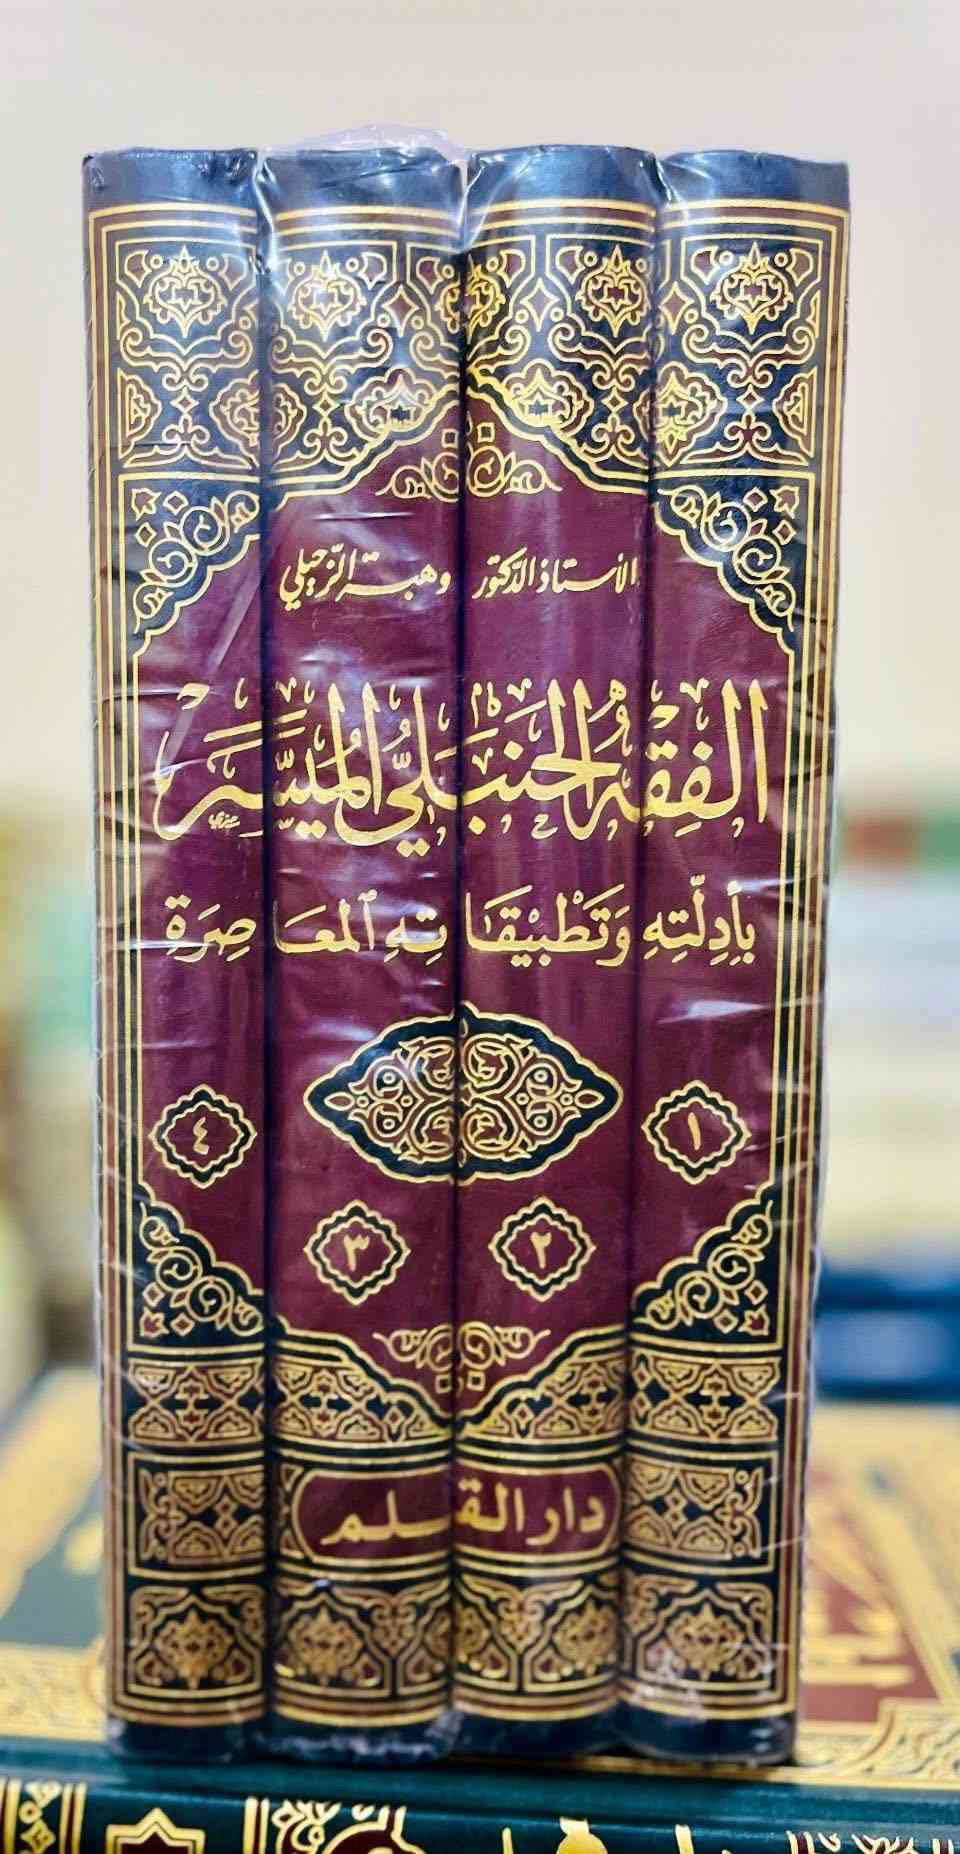 الأستاذ الدكتور وهبة الزحيلي
الفِقْهُ الحَنْبَلِيُّ المُيَسَّرُ
بِأَدِلَّتِهِ وَتَطْبِيْقَاتِهِ المُعَاصِرَة
١ ٤
٢ ٣
دار القلم